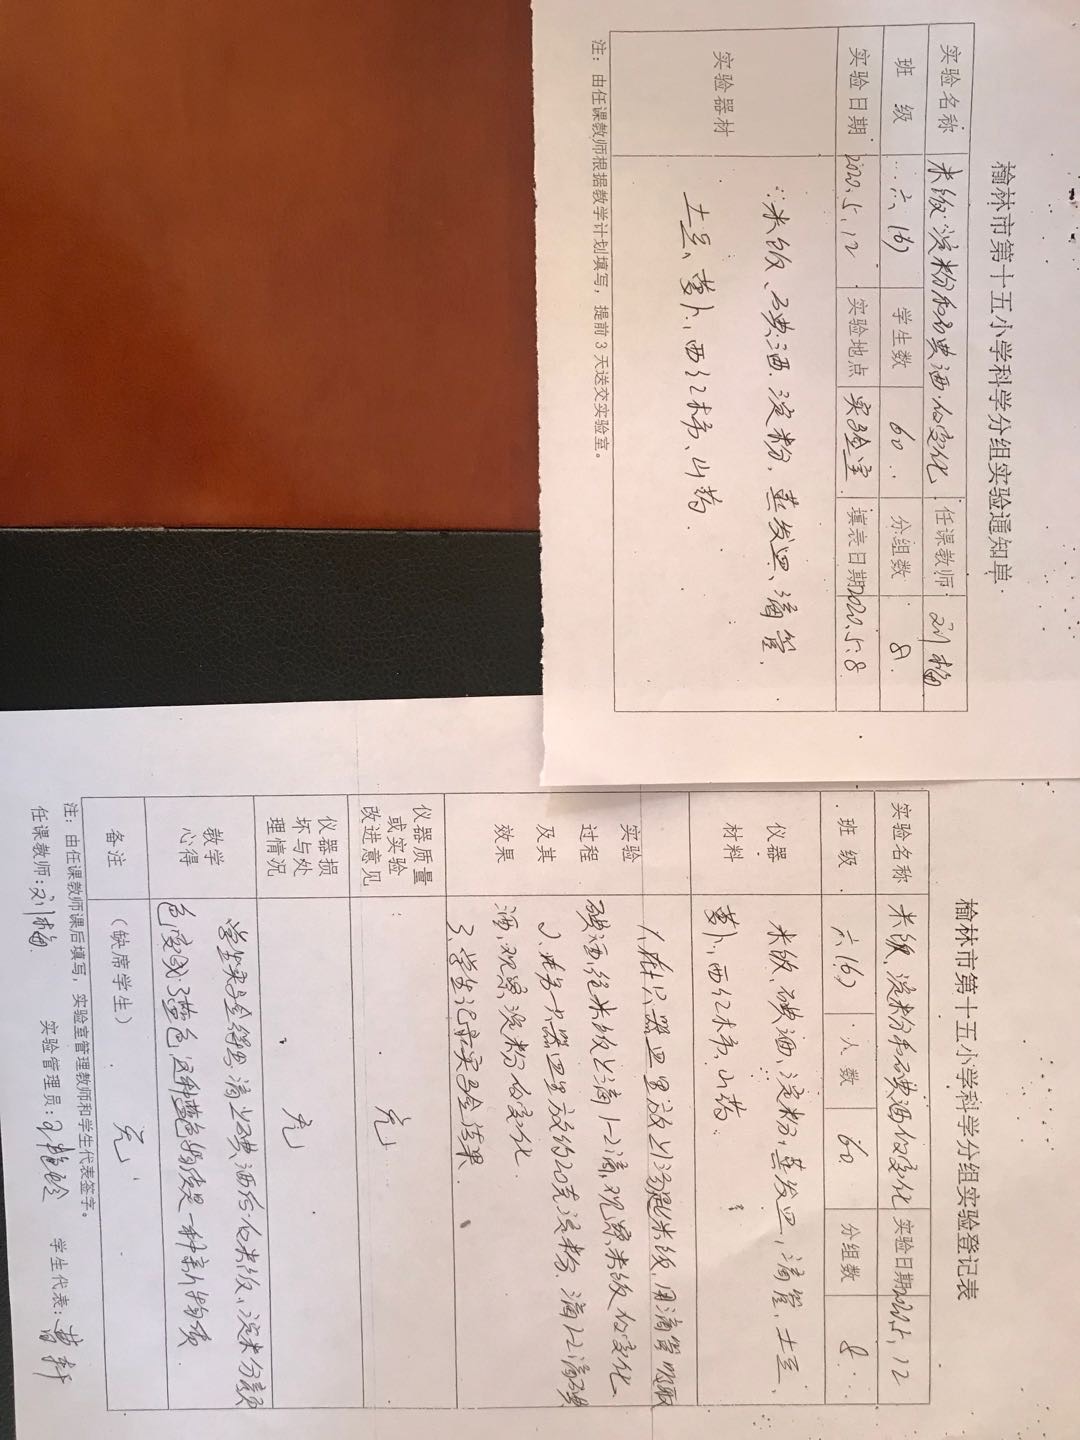 榆林市第十五小学科学分组实验通知单
实验名称 米饭、淀粉和碘酒的变化 任课教师 刘梅
班 级 六(6) 学生数 60 分组数 8
实验日期 2020.5.12 实验地点 实验室 填表日期 2020.5.8
实验器材 米饭、碘酒、淀粉、蒸发皿、滴管、
土豆、萝卜、西红柿、山药
注：由任课教师根据教学计划填写，提前3天送交实验室。
榆林市第十五小学科学分组实验登记表
实验名称 米饭、淀粉和碘酒的变化 实验日期 12
班 级 六(6) 人数 60 分组数 8
仪器
材料
米饭、碘酒、淀粉、蒸发皿、滴管、土豆、
萝卜、西红柿、山药
实验
过程
及其
效果
里放上米饭,用滴管吸取
碘酒,往米饭上滴1-2滴,观察米饭的变化
2、里放约20克淀粉,滴1-2滴碘
酒,观察淀粉的变化
3、学生记录实验结果
仪器质量
或实验
改进意见
无
仪器损
坏与处
理情况
无
教学
心得
学生实验得出:滴上碘酒后的米饭、淀粉颜
色变成了蓝色,这种蓝色物质是一种新物质
备注 (缺席学生) 无
注：由任课教师课后填写，实验室管理教师和学生代表签字。
任课教师:刘梅 实验管理员: 学生代表: